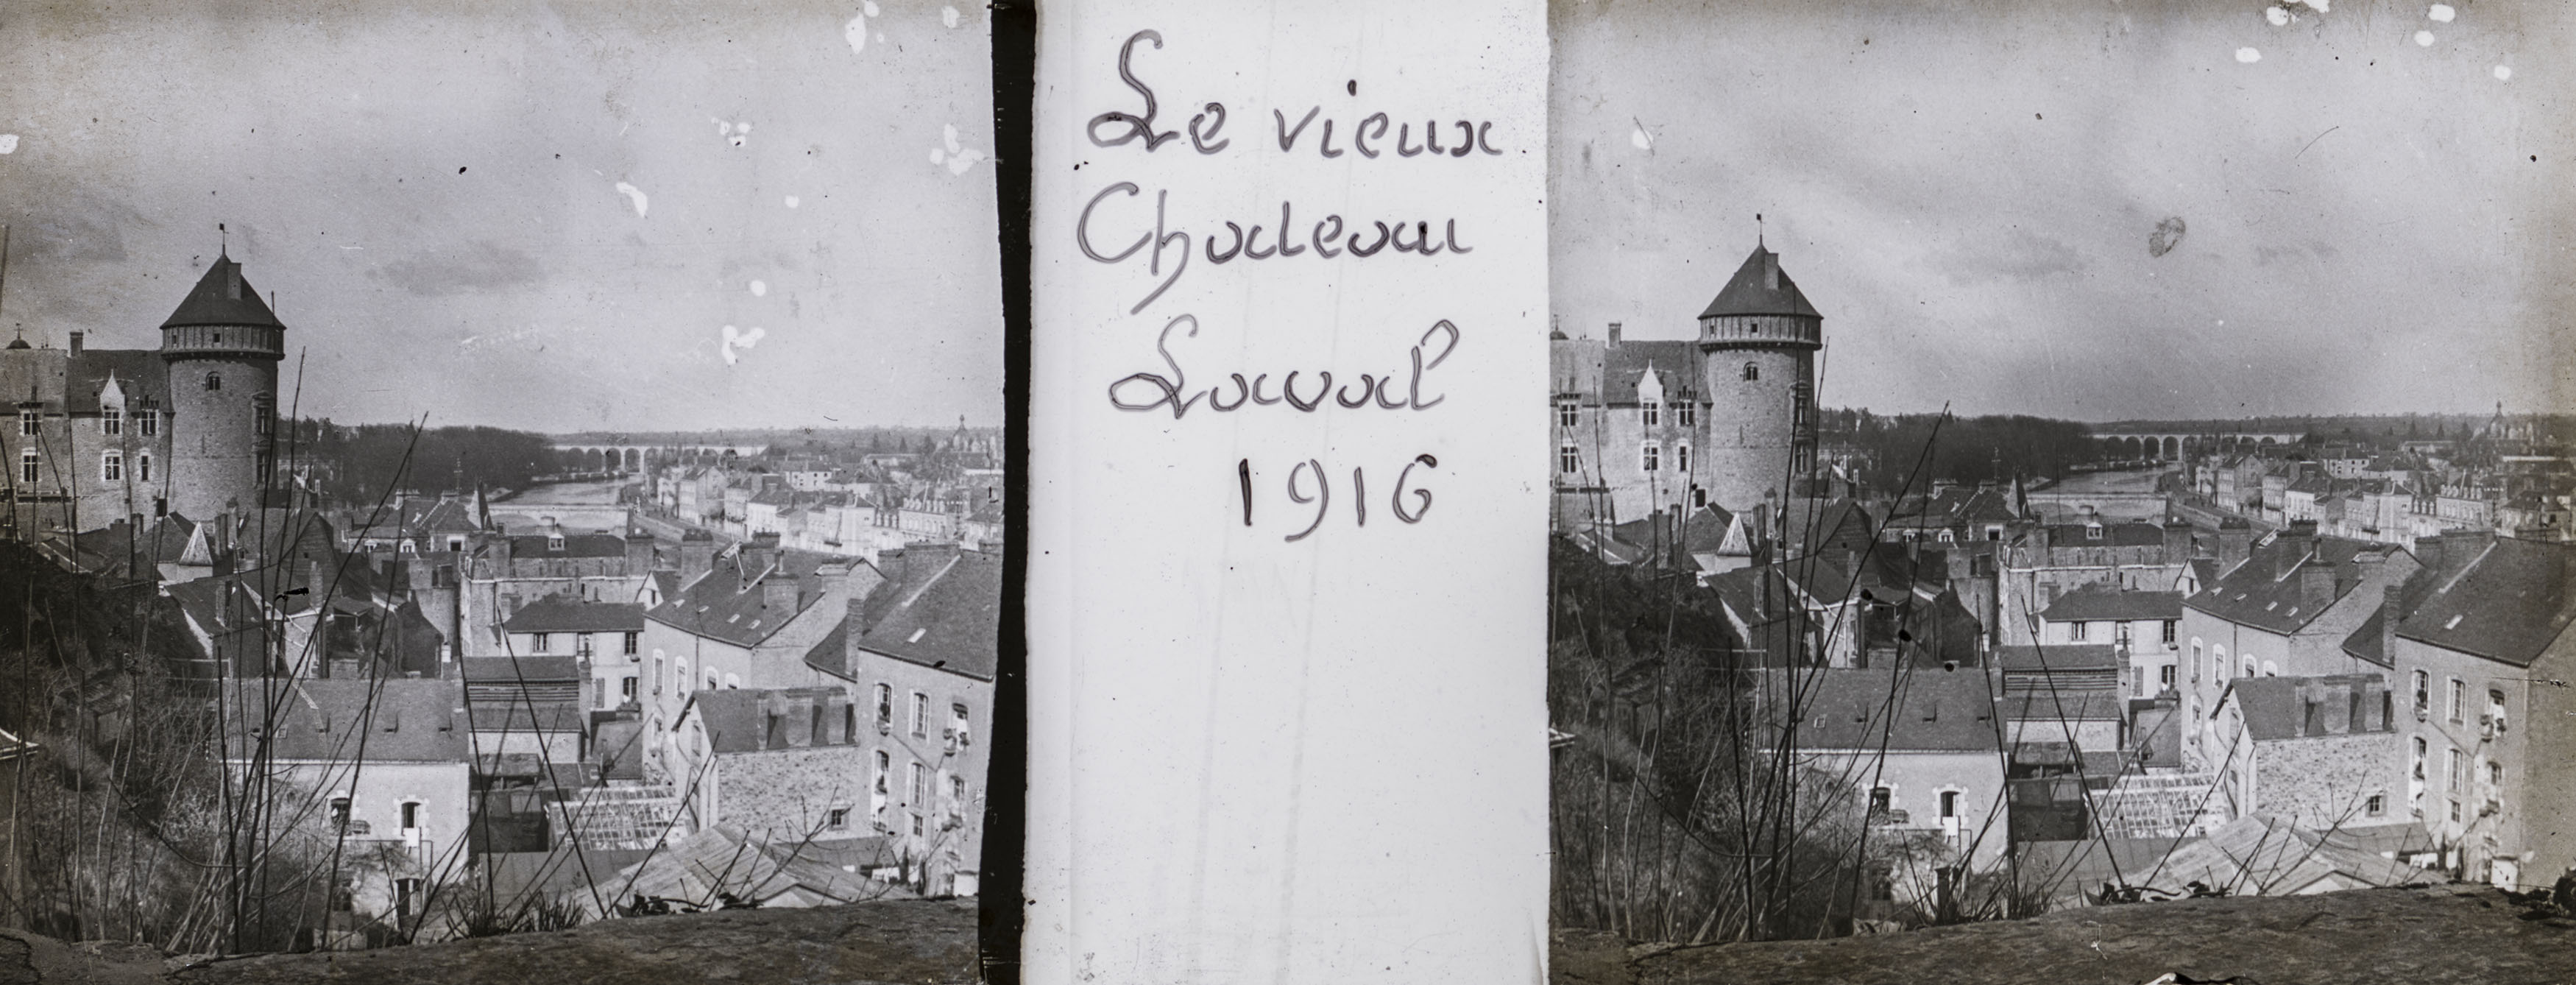 Le vieux
Chateau
Laval
1916